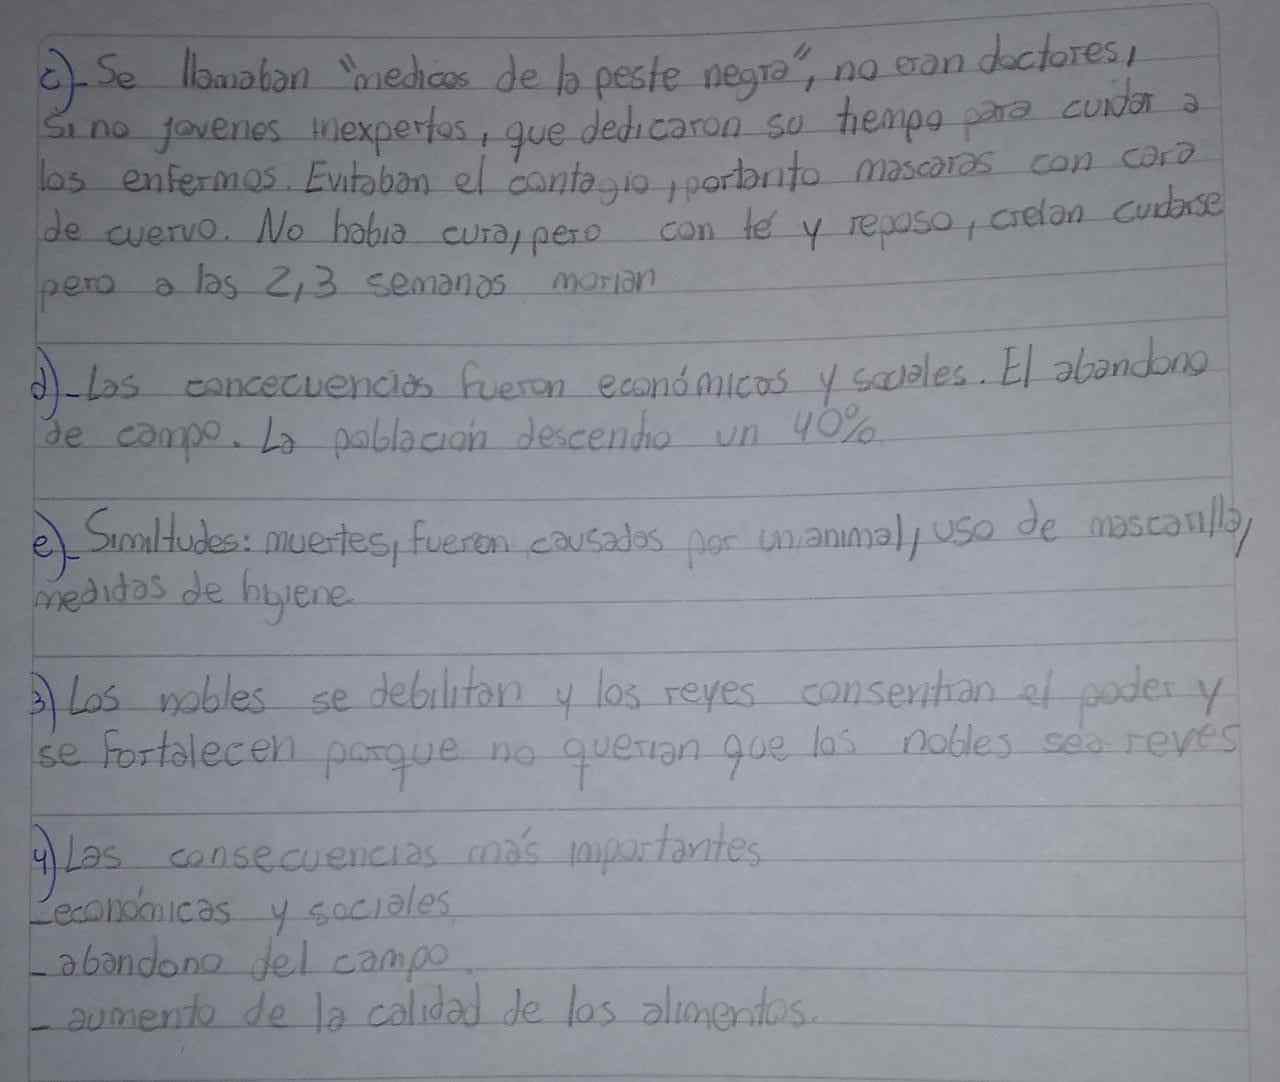 c)- Se llamaban "medicos de la peste negra", no eran doctores,
Si no jovenes inexpertos, que dedicaron su tiempo para cuidar a
los enfermos. Evitaban el contagio, portanto mascaras con cara
de cuervo. No habia cura, pero con té y reposo, creian curdarse
pero a las 2,3 semanas morian
d)-Las concecuencias fueron económicas y sociales. El abandono
de campo. La población descendio un 40%
e)- Similtudes: muertes, fueron causados por un animal, uso de mascarilla,
medidas de hgiene
3) Los nobles se debilitan y los reyes consentian el poder y
se Fortalecen porque no querian que los nobles sea reyes
4) Las consecuencias más importantes
- económicas y sociales
- abandono del campo.
- aumento de la calidad de los alimentos.